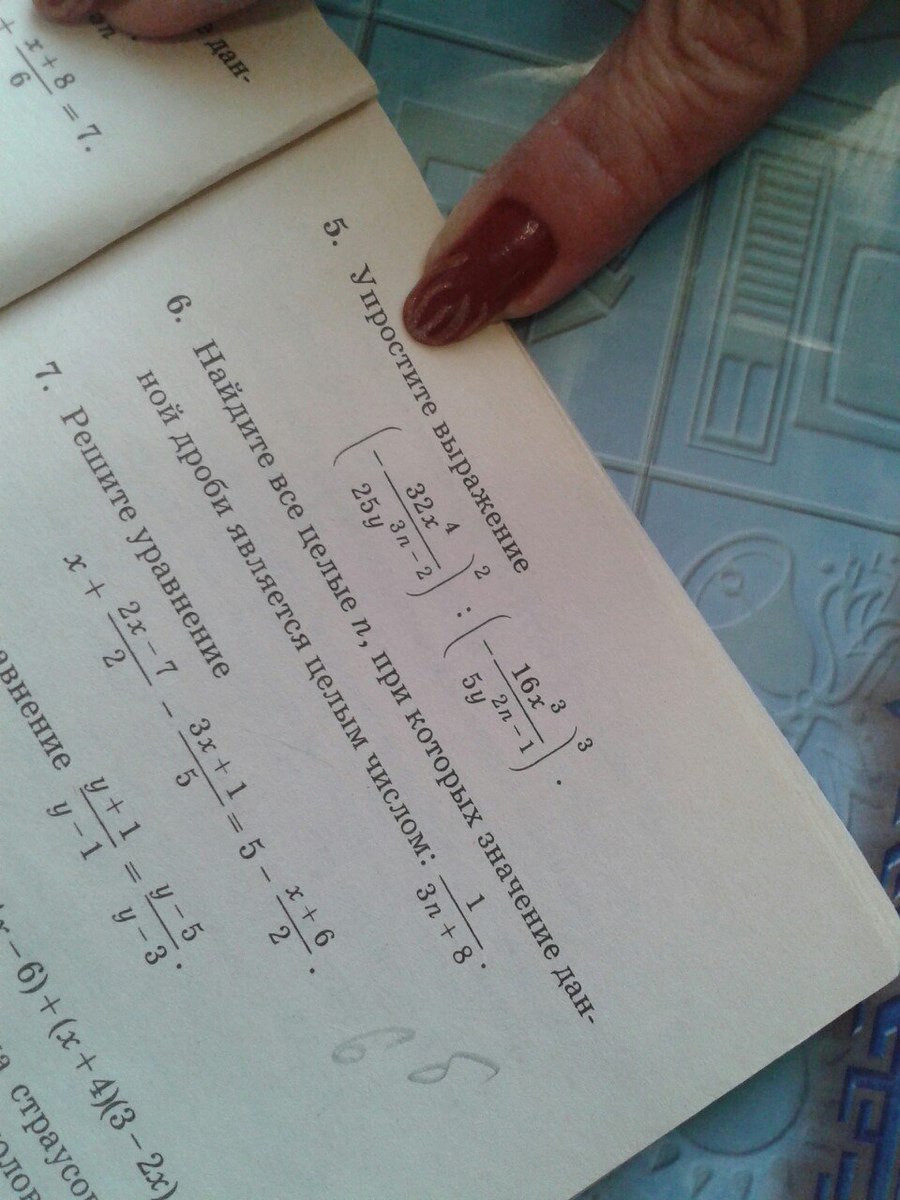 дан-
+ \frac{x+8}{6} = 7.
5. Упростите выражение
\left(-\frac{32x^4}{25y^{3n-2}}\right)^2 : \left(-\frac{16x^3}{5y^{2n-1}}\right)^3.
6. Найдите все целые n, при которых значение дан-
ной дроби является целым числом: \frac{1}{3n+8}.
7. Решите уравнение
x + \frac{2x-7}{2} - \frac{3x+1}{5} = 5 - \frac{x+6}{2}.
\frac{y+1}{y-1} = \frac{y-5}{y-3}.
x - 6) + (x + 4)(3 - 2x)
страусов
6 б